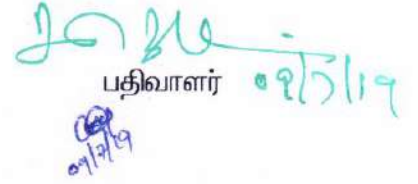 பதிவாளர் 09/7/19
09/7/19